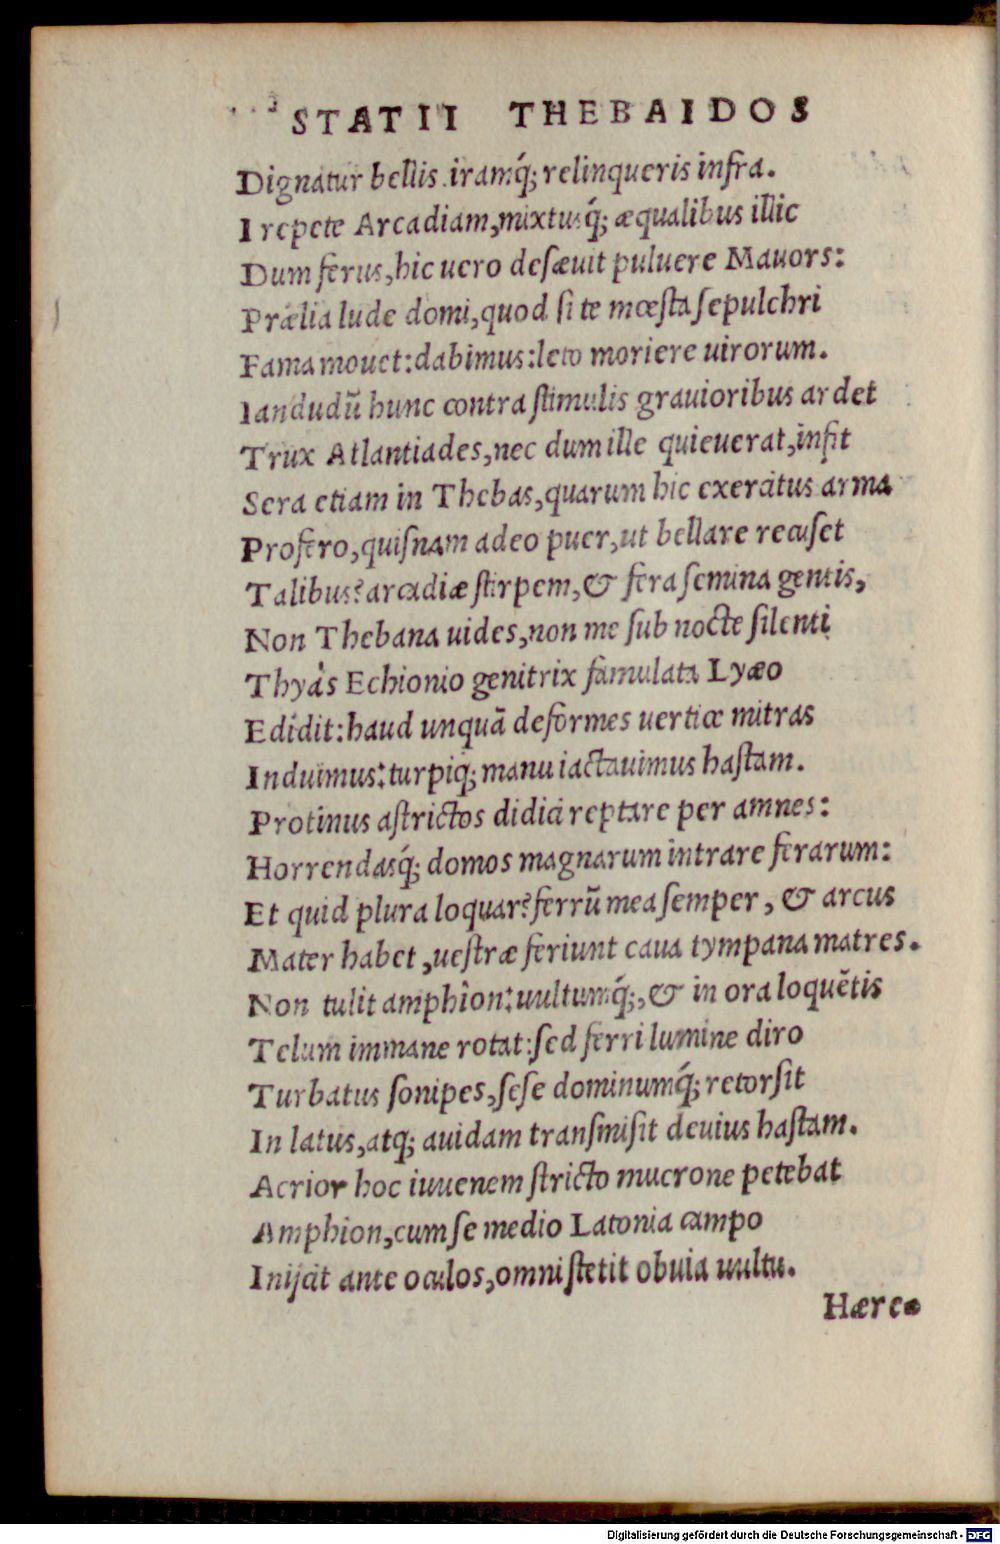 STATII THEBAIDOS
Dignatur bellis. iramq́; relinqueris infra.
I repete Arcadiam, mixtusq́; æqualibus illic
Dum ferus, hic uero desæuit puluere Mauors:
Prælia lude domi, quod si te mœsta sepulchri
Fama mouet: dabimus: leto moriere uirorum.
Iandudū hunc contra stimulis grauioribus ardet
Trux Atlantiades, nec dum ille quieuerat, infit
Sera etiam in Thebas, quarum hic exercitus arma
Profero, quisnam adeo puer, ut bellare recuset
Talibus? arcadiæ stirpem, & fera semina gentis,
Non Thebana uides, non me sub nocte silenti
Thyàs Echionio genitrix famulata Lyæo
Edidit: haud unquā deformes uertice mitras
Induimus: turpiq; manu iactauimus hastam.
Protinus astrictos didici reptare per amnes:
Horrendasq́; domos magnarum intrare ferarum:
Et quid plura loquar? ferrū mea semper, & arcus
Mater habet, uestræ feriunt caua tympana matres.
Non tulit amphìon: uultumq́;, & in ora loquētis
Telum immane rotat: sed ferri lumine diro
Turbatus sonipes, sese dominumq́; retorsit
In latus, atq; auidam transmisit deuius hastam.
Acrior hoc iuuenem stricto mucrone petebat
Amphion, cum se medio Latonia campo
Inijcit ante oculos, omni stetit obuia uultu.
Hære-
Digitalisierung gefördert durch die Deutsche Forschungsgemeinschaft - DFG